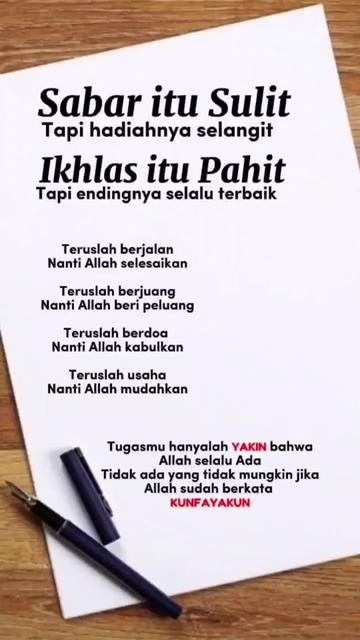 Sabar itu Sulit
Tapi hadiahnya selangit
Ikhlas itu Pahit
Tapi endingnya selalu terbaik
Teruslah berjalan
Nanti Allah selesaikan
Teruslah berjuang
Nanti Allah beri peluang
Teruslah berdoa
Nanti Allah kabulkan
Teruslah usaha
Nanti Allah mudahkan
Tugasmu hanyalah YAKIN bahwa
Allah selalu Ada
Tidak ada yang tidak mungkin jika
Allah sudah berkata
KUNFAYAKUN